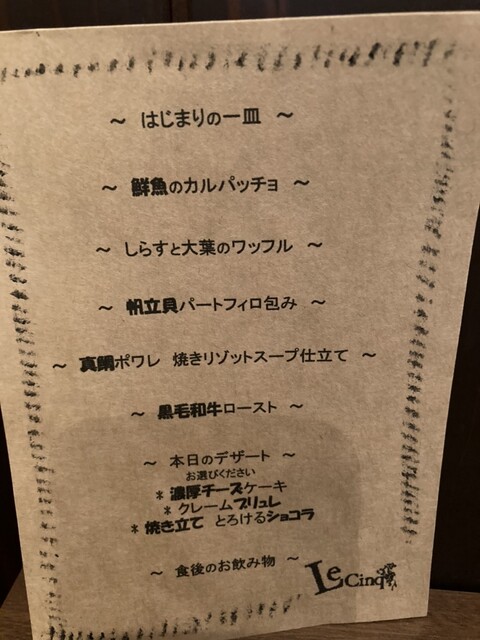 ～ はじまりの一皿 ～
～ 鮮魚のカルパッチョ ～
～ しらすと大葉のワッフル ～
～ 帆立貝パートフィロ包み ～
～ 真鯛ポワレ 焼きリゾットスープ仕立て ～
～ 黒毛和牛ロースト ～
～ 本日のデザート ～
お選びください
＊ 濃厚チーズケーキ
＊ クレームブリュレ
＊ 焼き立て とろけるショコラ
～ 食後のお飲み物 ～
Le Cinq